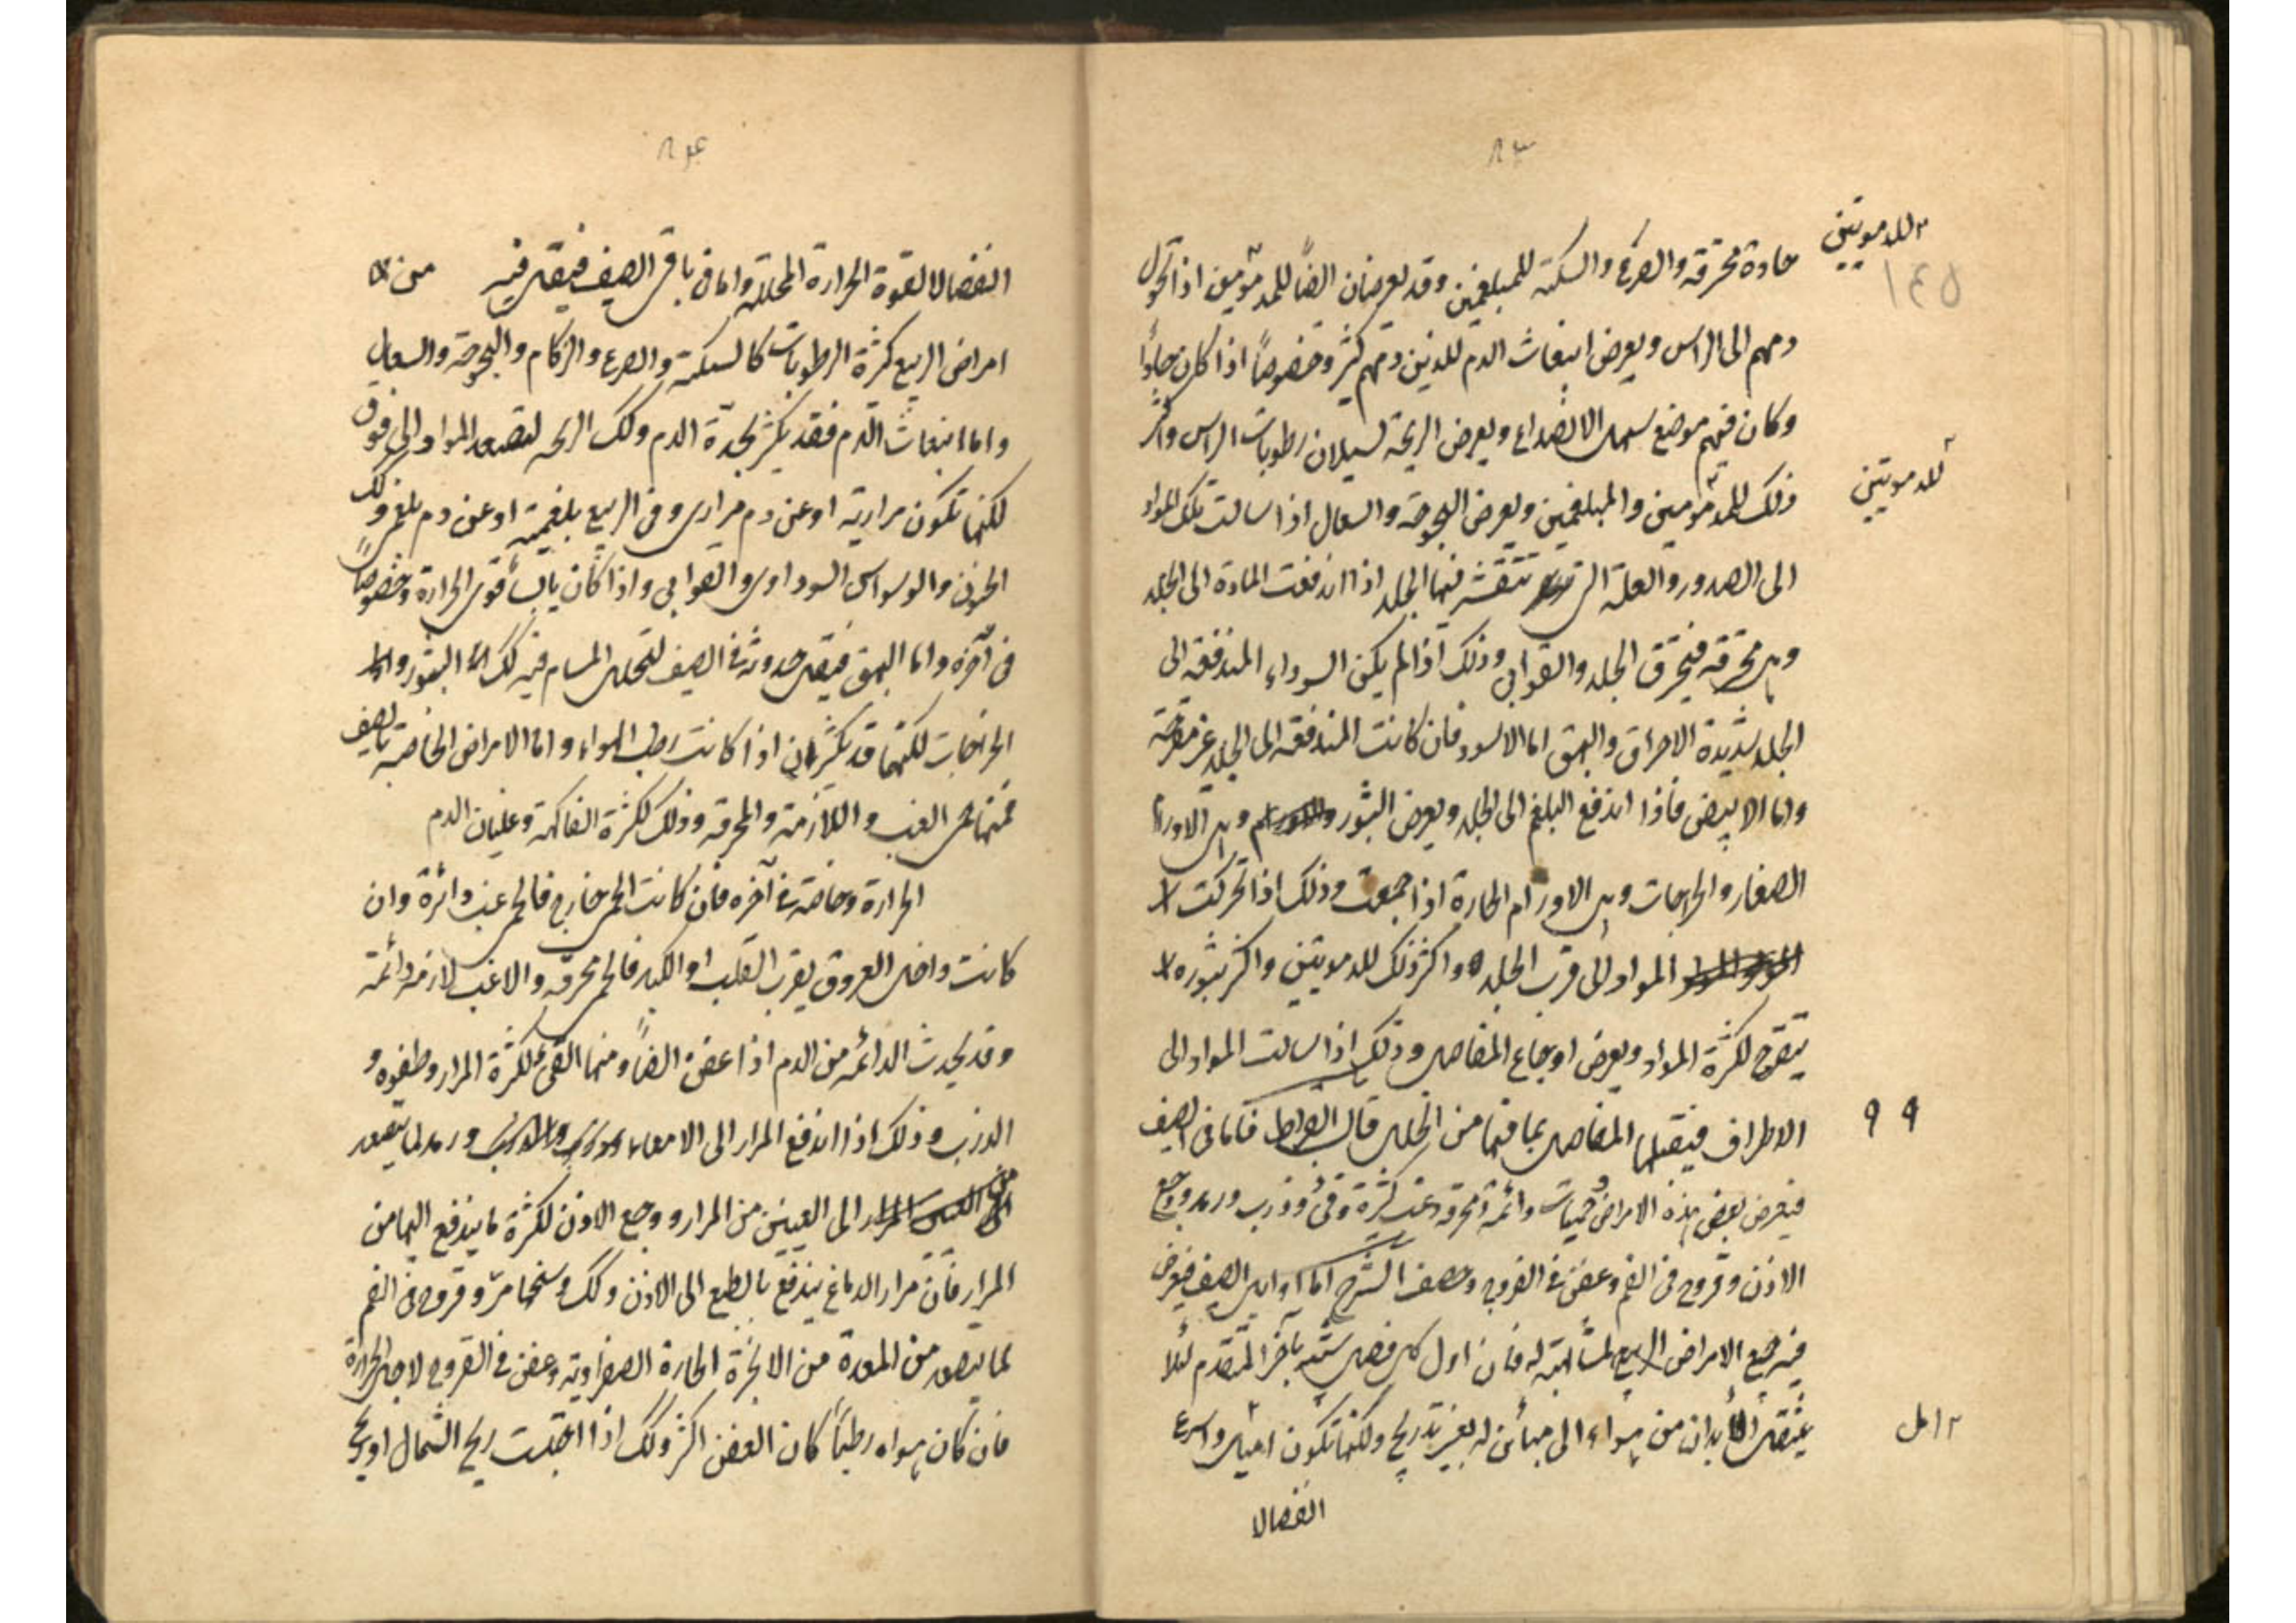 ٨٣
للدمويين
١٤٥
حادة محرقة والصرع والسكتة للمبلغمين وقد يعرضان ايضاً للمدمومين اذا تحرك
دمهم الى الراس ويعرض انبعاث الدم للذين دمهم كثير وخصوصاً اذا كان حاداً
وكان فيهم موضع سهل الانصداع ويعرض الذبحة لسيلان رطوبات الراس واكثر
ذلك للمدمومين والمبلغمين ويعرض البحوحة والسعال اذا سالت تلك المواد
للدمويين
الى الصدور والعلة التي تتقشر فيها الجلد اذا اندفعت المادة الى الجلد
وهى محرقة فيحرق الجلد والقوابى وذلك اذا لم يكن السوداء المندفعة الى
الجلد شديدة الاحراق والبهق اما الاسود فان كانت المندفعة الى الجلد غير متقرحة
واما الابيض فاذا اندفع البلغم الى الجلد ويعرض البثور وهى الاورام
الصغار والخراجات وهى الاورام الحارة اذا جمعت وذلك اذا تحركت
المواد الى قرب الجلد واكثر ذلك للدمويين واكثر بثوره
يتقرح لكثرة المواد ويعرض اوجاع المفاصل وذلك اذا سالت المواد الى
الاطراف فيقبلها المفاصل بما فيها من الخلل قال ابقراط فاما فى الصيف
٩ ٩
فيعرض بعض هذه الامراض وحميات دائمة ومحرقة وغب كثيرة وقئ وذرب ورمد ووجع
الاذن وقروح فى الفم وعفن فى الفروج وحصف الشرح اما اوايل الصيف فيعرض
فيه جميع الامراض الربيع لمشابهته له فان اول كل فصل شبيه بآخر المتقدم لئلا
ينتقل الابدان من هواء الى مباين له بغير تدريج ولكنها تكون اميل واسرع
اصل
انفصالا
٨٤
انفصالا لقوة الحرارة المحللة واما فى باقى الصيف فيقل فيه من
امراض الربيع كثرة الرطوبات كالسكتة والصرع والزكام والبحوحة والسعال
واما انبعاث الدم فقد يكثر لحدة الدم وكك الذبحة لتصعد المواد الى فوق
لكنها تكون مرارية او عن دم مرارى وفى الربيع بلغمية او عن دم بلغمى وكك
الحزن والوسواس السوداوى والقوابى واذا كان يابساً قوى الحرارة وخصوصاً
فى آخره واما البهق فيقل حدوثه فى الصيف لتحلل المسام فيه وكك البثور و
الخراجات لكنها قد يكثران اذا كانت رطب الهواء واما الامراض الخاصة بالصيف
فمنها حمى الغب واللازمة والمحرقة وذلك لكثرة الفاكهة وغليان الدم
الحرارة وخاصة فى آخره فان كانت الحمى خارج فالحمى غب دائرة وان
كانت داخل العروق بقرب القلب او الكبد فالحمى محرقة والا غب لازمة دائمة
وقد يحدث الدائمة من الدم اذا عفن ايضاً ومنها القئ لكثرة المرار وطفوه و
الذرب وذلك اذا اندفع المرار الى الامعاء ورمد لما يتصعد
الى العينين من المرار ووجع الاذن لكثرة ما يندفع اليها من
المرار فان مرار الدماغ يندفع بالطبع الى الاذن وكك وسخها مر وقروح فى الفم
لما يتصعد من المعدة من الابخرة الحارة الصفراوية وعفن فى الفروج لاجل الحرارة
فان كان هواه رطباً كان العفن اكثر وكك اذا اهبت ريح الشمال او ريح